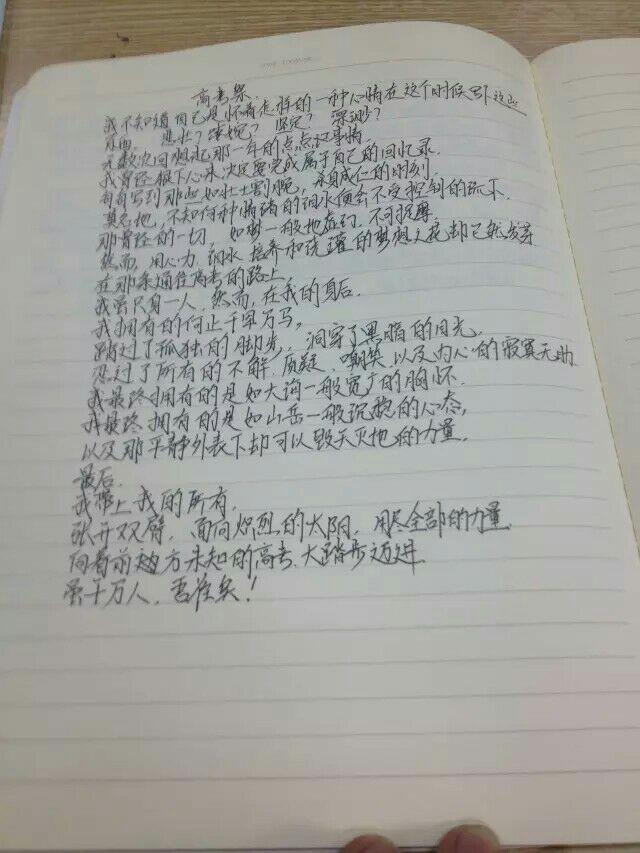 高考祭.
我不知道自己是怀着怎样的一种心情在这个时候写下这些
东西. 悲壮? 凄婉? 坚定? 深沉?
无数次回想起那一年的点点滴滴事情
我曾经狠下心来决定要完成属于自己的回忆录.
每每写到那些如壮士割腕, 杀身成仁的时刻.
莫名地, 不知何种情绪的泪水便会不受控制的流下.
那曾经的一切, 如树一般地在, 不可抚摩.
然而, 用心力, 泪水, 培养和浇灌的梦想之花却已然发芽
在那条通往高考的路上,
我虽只身一人, 然而, 在我的身后.
我拥有的何止千军万马,
踏过了孤独的脚步, 洞穿了黑暗的目光,
忍过了所有的不解, 质疑, 嘲笑以及内心的寂寞无助
我最终拥有的是如大海一般宽广的胸怀.
我最终拥有的是如山岳一般沉稳的心态,
以及那平静外表下却可以毁天灭地的力量.
最后.
我带上我的所有,
张开双臂, 面向炽烈的太阳, 用尽全部的力量
向着前方未知的高考, 大踏步迈进
虽千万人, 吾往矣!